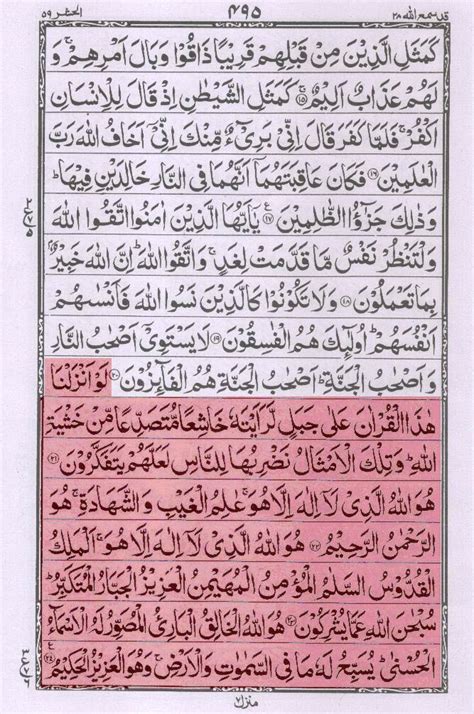 قد سمع الله ٢٨
٤٩٥
الحشر ٥٩
كَمَثَلِ الَّذِيْنَ مِنْ قَبْلِهِمْ قَرِيْبًا ذَاقُوْا وَبَالَ اَمْرِهِمْ ۚ وَ
لَهُمْ عَذَابٌ اَلِيْمٌ ﴿۱۵﴾ كَمَثَلِ الشَّيْطٰنِ اِذْ قَالَ لِلْاِنْسَانِ
اكْفُرْ ۚ فَلَمَّا كَفَرَ قَالَ اِنِّىْ بَرِىْٓءٌ مِّنْكَ اِنِّىْٓ اَخَافُ اللّٰهَ رَبَّ
الْعٰلَمِيْنَ ﴿۱۶﴾ فَكَانَ عَاقِبَتَهُمَآ اَنَّهُمَا فِى النَّارِ خَالِدَيْنِ فِيْهَا ؕ
وَذٰلِكَ جَزٰٓؤُا الظّٰلِمِيْنَ ﴿۱۷﴾ يٰٓاَيُّهَا الَّذِيْنَ اٰمَنُوا اتَّقُوا اللّٰهَ
وَلْتَنْظُرْ نَفْسٌ مَّا قَدَّمَتْ لِغَدٍ ۚ وَاتَّقُوا اللّٰهَ ؕ اِنَّ اللّٰهَ خَبِيْرٌۢ
بِمَا تَعْمَلُوْنَ ﴿۱۸﴾ وَلَا تَكُوْنُوْا كَالَّذِيْنَ نَسُوا اللّٰهَ فَاَنْسٰىهُمْ
اَنْفُسَهُمْ ؕ اُولٰٓئِكَ هُمُ الْفٰسِقُوْنَ ﴿۱۹﴾ لَا يَسْتَوِىْٓ اَصْحٰبُ النَّارِ
وَاَصْحٰبُ الْجَنَّةِ ؕ اَصْحٰبُ الْجَنَّةِ هُمُ الْفَآئِزُوْنَ ﴿۲۰﴾ لَوْ اَنْزَلْنَا
هٰذَا الْقُرْاٰنَ عَلٰى جَبَلٍ لَّرَاَيْتَهٗ خَاشِعًا مُّتَصَدِّعًا مِّنْ خَشْيَةِ
اللّٰهِ ؕ وَتِلْكَ الْاَمْثَالُ نَضْرِبُهَا لِلنَّاسِ لَعَلَّهُمْ يَتَفَكَّرُوْنَ ﴿۲۱﴾
هُوَ اللّٰهُ الَّذِىْ لَآ اِلٰهَ اِلَّا هُوَ ۚ عٰلِمُ الْغَيْبِ وَالشَّهَادَةِ ۚ هُوَ
الرَّحْمٰنُ الرَّحِيْمُ ﴿۲۲﴾ هُوَ اللّٰهُ الَّذِىْ لَآ اِلٰهَ اِلَّا هُوَ ۚ اَلْمَلِكُ
الْقُدُّوْسُ السَّلٰمُ الْمُؤْمِنُ الْمُهَيْمِنُ الْعَزِيْزُ الْجَبَّارُ الْمُتَكَبِّرُ ؕ
سُبْحٰنَ اللّٰهِ عَمَّا يُشْرِكُوْنَ ﴿۲۳﴾ هُوَ اللّٰهُ الْخَالِقُ الْبَارِئُ الْمُصَوِّرُ لَهُ الْاَسْمَآءُ
الْحُسْنٰى ؕ يُسَبِّحُ لَهٗ مَا فِى السَّمٰوٰتِ وَالْاَرْضِ ۚ وَهُوَ الْعَزِيْزُ الْحَكِيْمُ ﴿۲۴﴾
منزل ٧